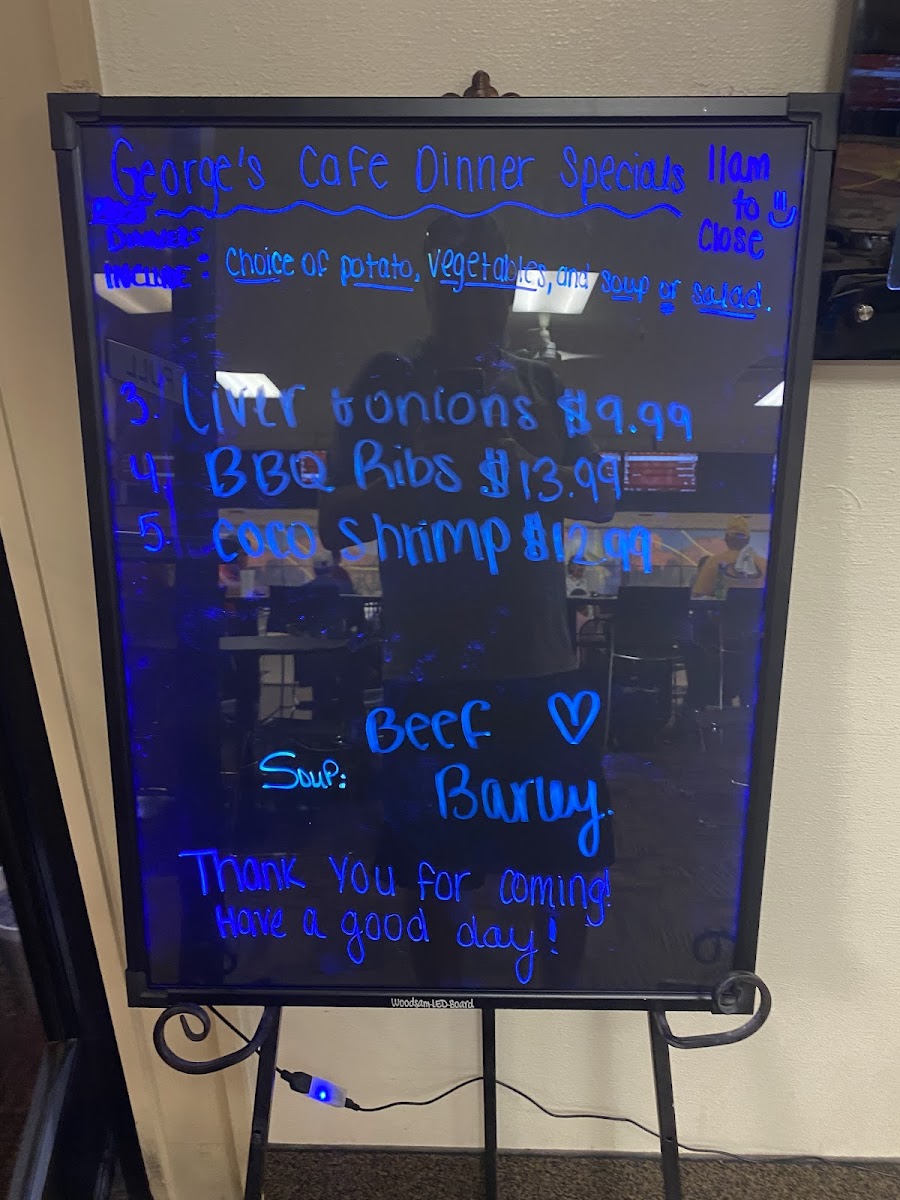 George's Cafe Dinner Specials
11am
to
Close
DINNERS
INCLUDE : Choice of potato, vegetables, and soup or salad.
3. Liver & onions $9.99
4. BBQ Ribs $13.99
5. coco shrimp $12.99
Beef
Soup: Barley.
Thank You for coming!
Have a good day!
Woodsam-LED-Board